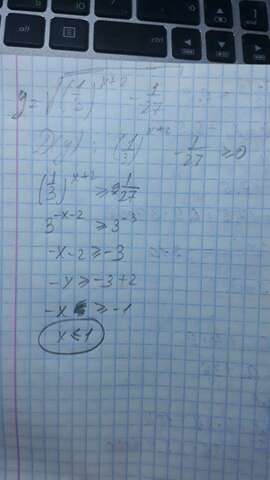 y = √((1/3)^(x+2) - 1/27)
D(y): (1/3)^(x+2) - 1/27 ≥ 0
(1/3)^(x+2) ≥ 1/27
3^(-x-2) ≥ 3^(-3)
-x-2 ≥ -3
-x ≥ -3+2
-x ≥ -1
x ≤ 1